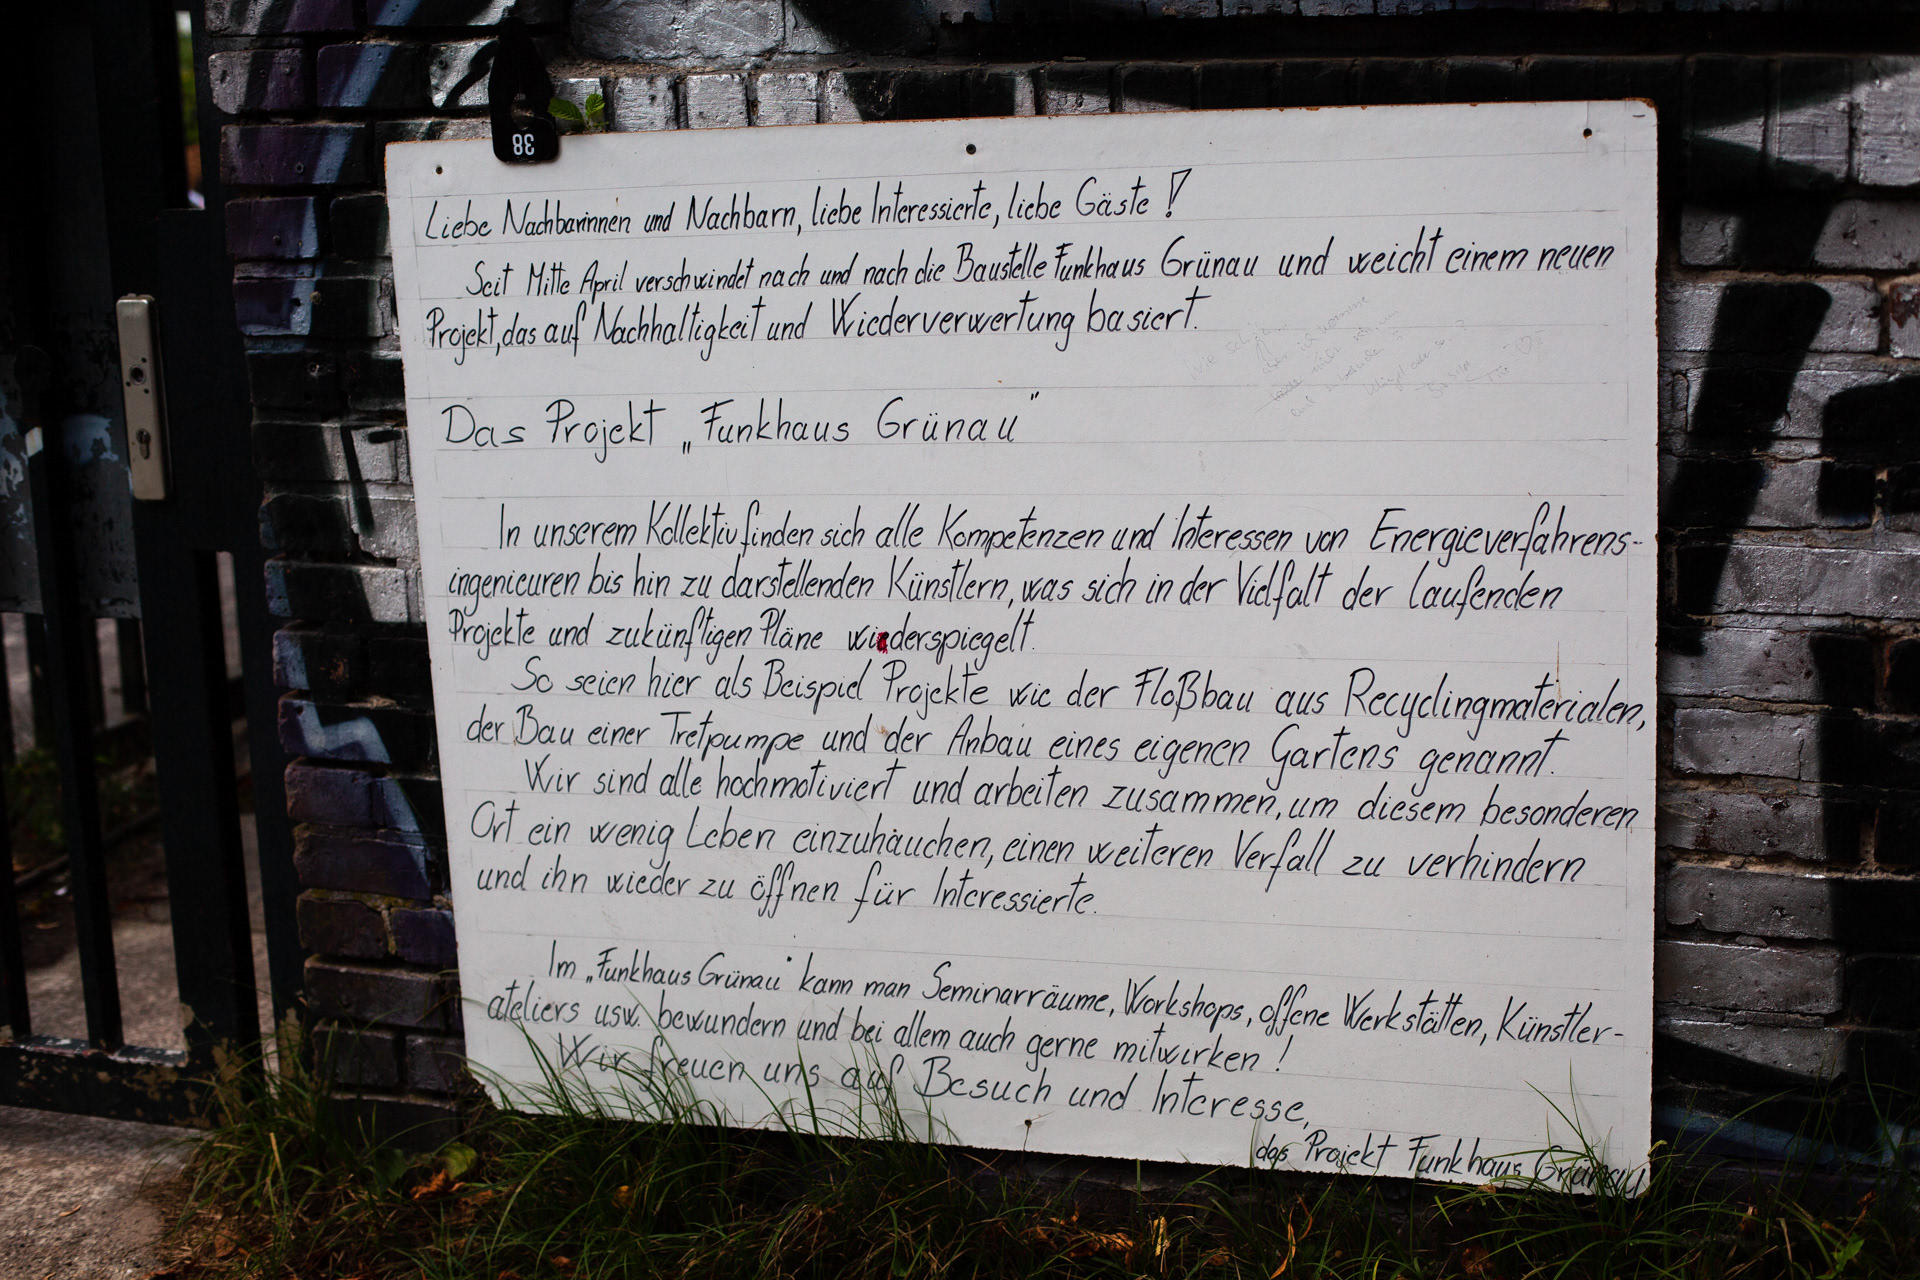 38
Liebe Nachbarinnen und Nachbarn, liebe Interessierte, liebe Gäste!
Seit Mitte April verschwindet nach und nach die Baustelle Funkhaus Grünau und weicht einem neuen
Projekt, das auf Nachhaltigkeit und Wiederverwertung basiert.
Das Projekt „Funkhaus Grünau"
In unserem Kollektiv finden sich alle Kompetenzen und Interessen von Energieverfahrens-
ingenieuren bis hin zu darstellenden Künstlern, was sich in der Vielfalt der laufenden
Projekte und zukünftigen Pläne wiederspiegelt.
So seien hier als Beispiel Projekte wie der Floßbau aus Recyclingmaterialen,
der Bau einer Tretpumpe und der Anbau eines eigenen Gartens genannt.
Wir sind alle hochmotiviert und arbeiten zusammen, um diesem besonderen
Ort ein wenig Leben einzuhäuchen, einen weiteren Verfall zu verhindern
und ihn wieder zu öffnen für Interessierte.
Im „Funkhaus Grünau" kann man Seminarräume, Workshops, offene Werkstätten, Künstler-
ateliers usw. bewundern und bei allem auch gerne mitwirken!
Wir freuen uns auf Besuch und Interesse,
das Projekt Funkhaus Grünau